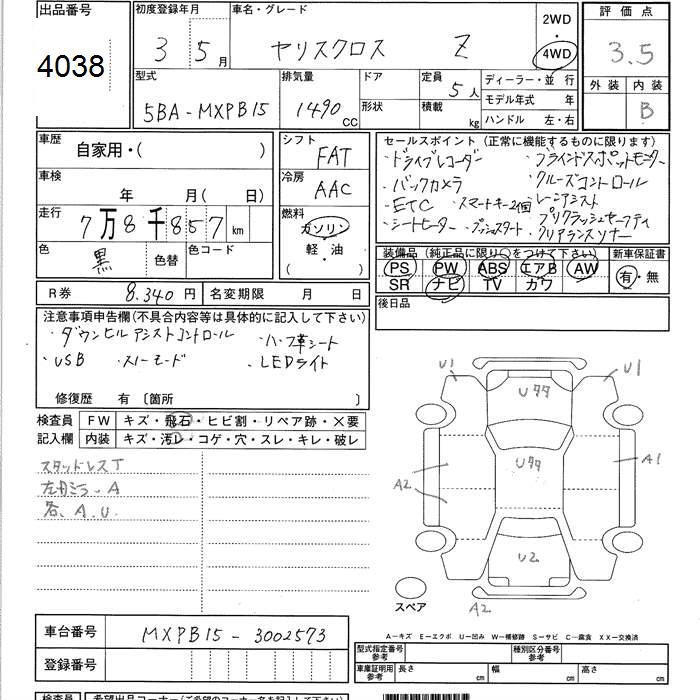 出品番号 4038
初度登録年月 3 5月
車名・グレード ヤリスクロス Z
2WD 4WD
評価点 3.5
外装 内装 B
型式 5BA-MXPB15
排気量 1490 CC
ドア 形状
定員 5人
積載 kg
ディーラー・並行
モデル年式 年
ハンドル 左・右
車歴 自家用・( )
車検 年 月( 日)
走行 7万8千857 km
色 黒 色替 色コード
シフト FAT
冷房 AAC
燃料 ガソリン
軽・油
( )
セールスポイント (正常に機能するものに限ります)
・ドライブレコーダー ・ブラインドスポットモニター
・バックカメラ ・クルーズコントロール
・ETC ・スマートキー2個 ・レーンアシスト
・シートヒーター ・プッシュスタート ・プリクラッシュセーフティ
・クリアランスソナー
装備品 (純正品に限り○をつけて下さい)
新車保証書
PS PW ABS エアB AW
有・無
SR ナビ TV カワ
後日品
R券 8.340円
名変期限 月 日
注意事項申告欄(不具合内容等は具体的に記入して下さい)
・ダウンヒルアシストコントロール ・ハーフ革シート
・USB ・スノーモード ・LEDライト
修復歴 有 〔箇所 〕
検査員 記入欄
FW キズ・飛石・ヒビ割・リペア跡・×要
内装 キズ・汚レ・コゲ・穴・スレ・キレ・破レ
スタッドレスT
左右ミラーA
各、A.U.
U1 U1
Uタタ
Uタタ
A2 A1
U2
A2
スペア
A―キズ E―エクボ U―凹み W―補修跡 S―サビ C―腐食 XX―交換済
車台番号 MXPB15-3002573
登録番号
型式指定番号 参考
種別区分番号 参考
車庫証明用 参考 長さ cm 幅 cm 高さ cm
検査員 希望出品コーナー(ご希望のコーナー名を記入して下さい)